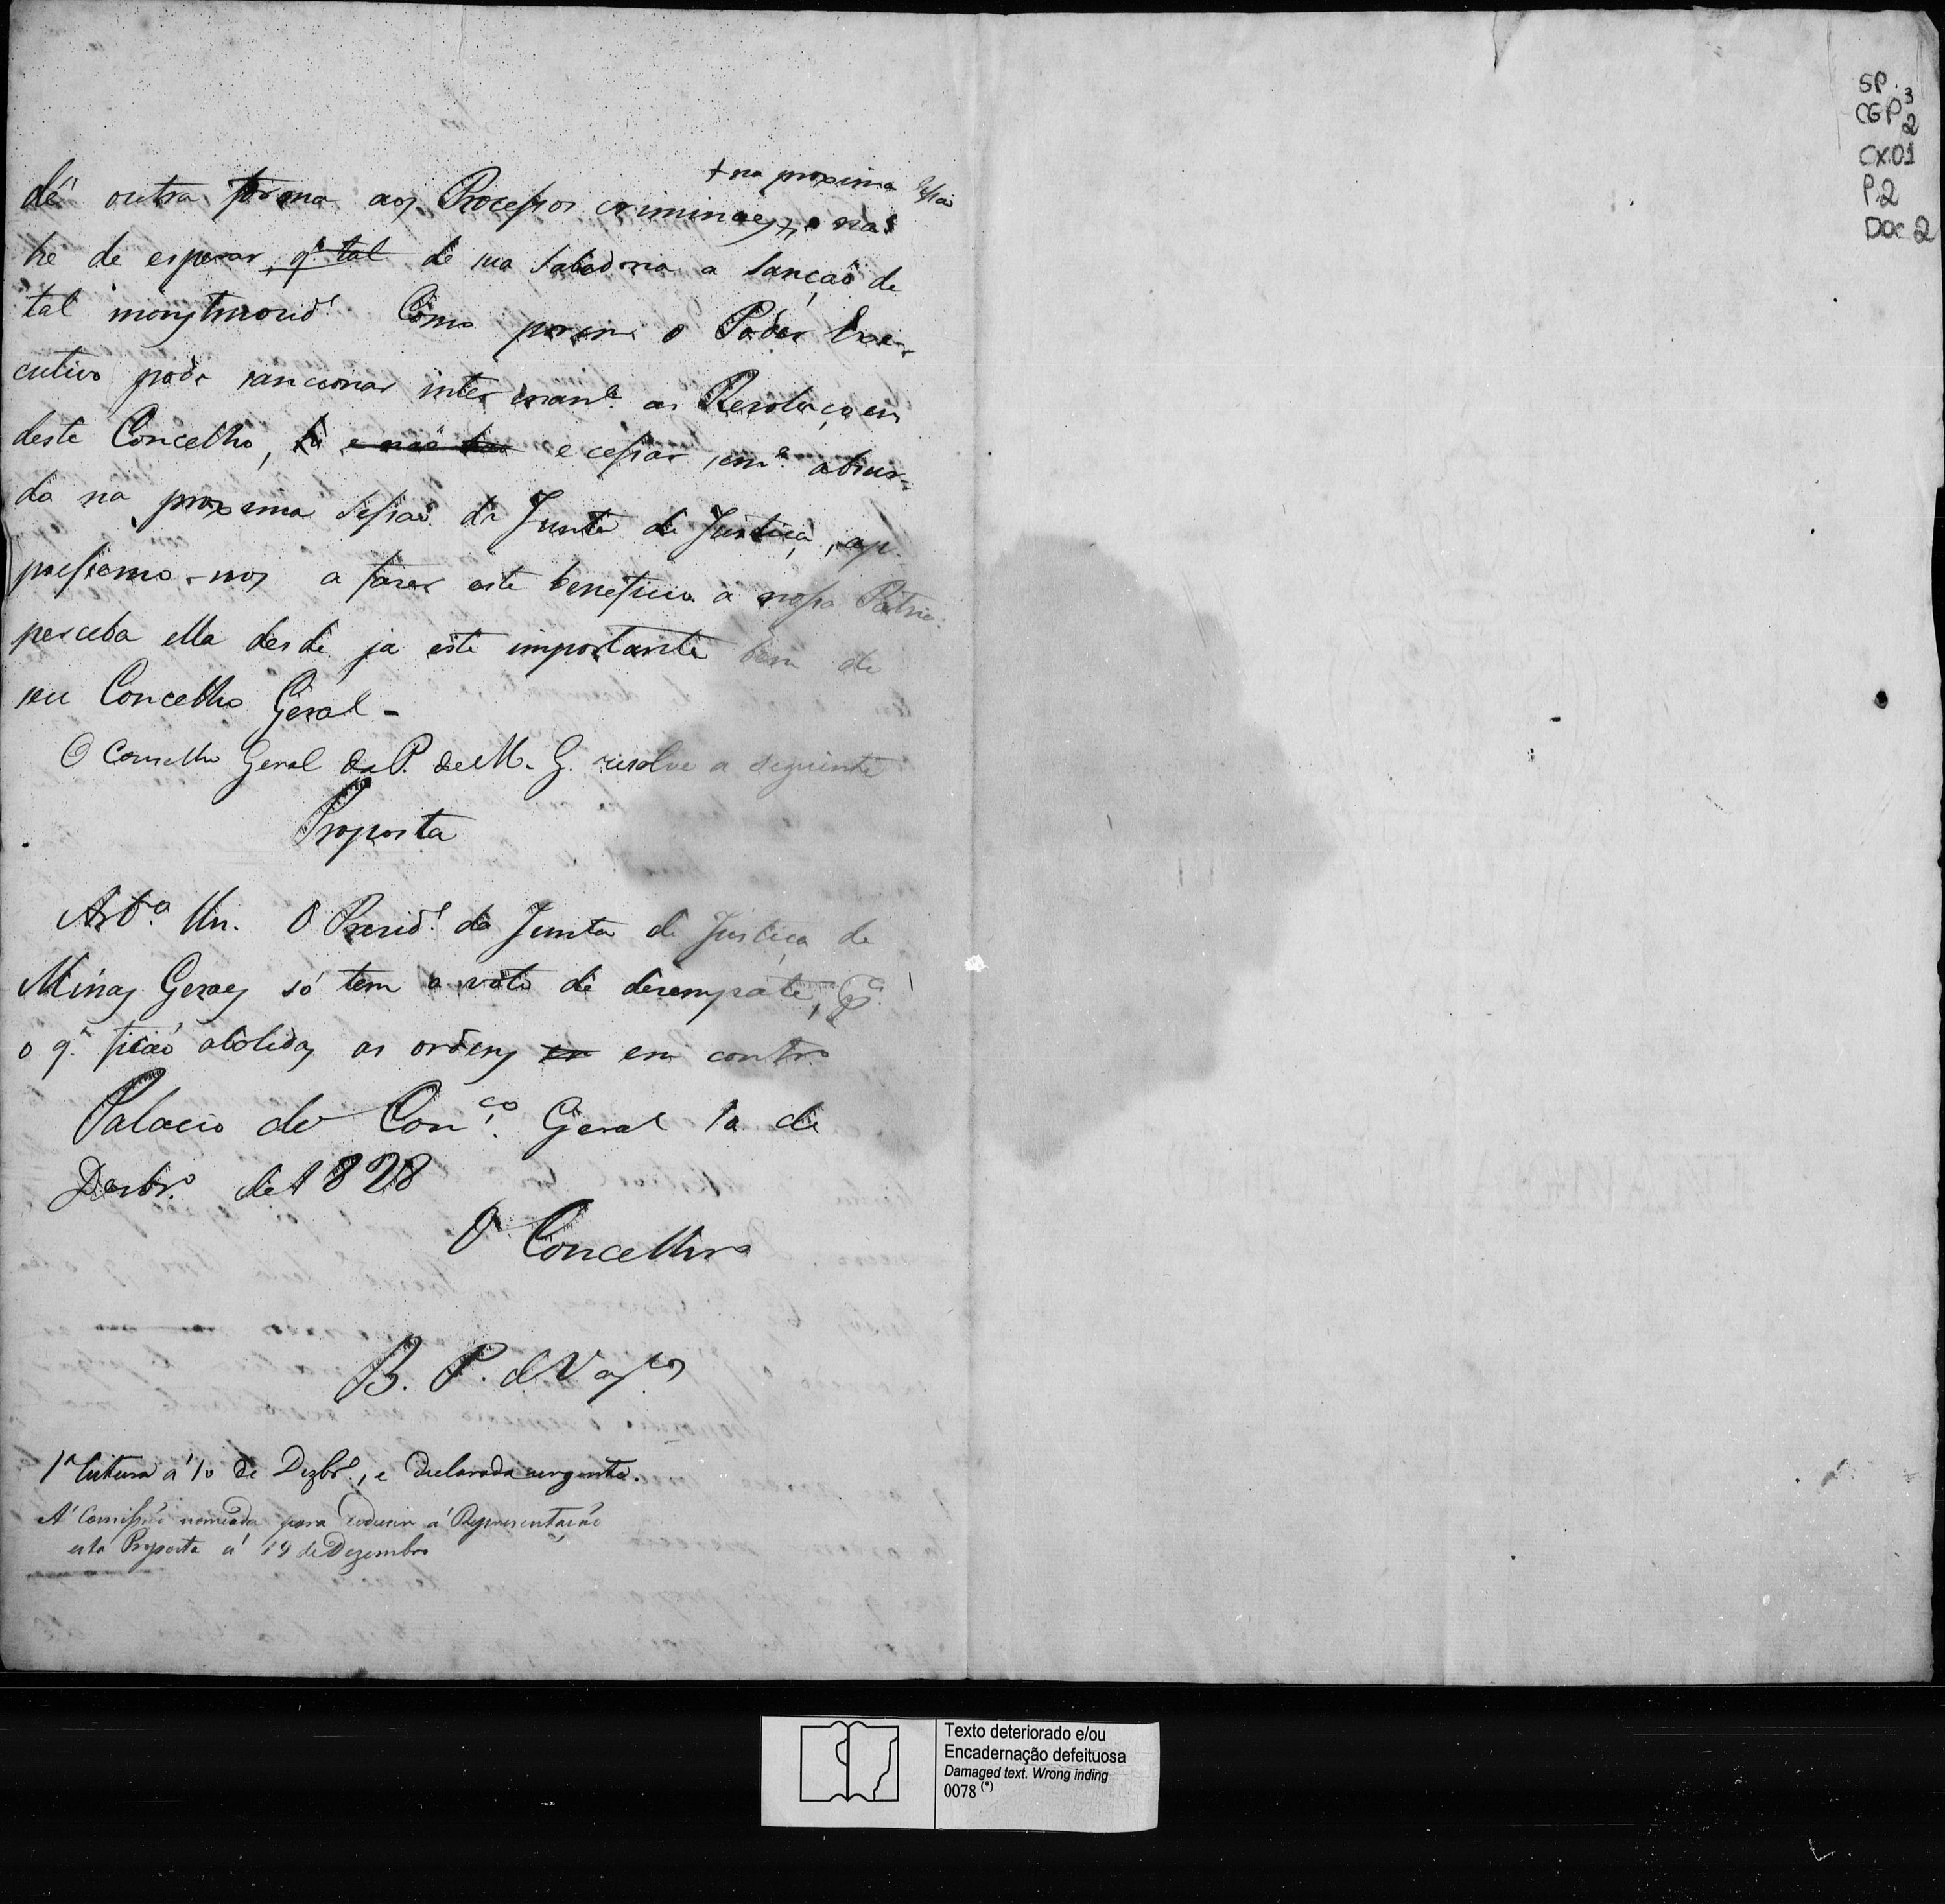 + na proxima Sessaõ
dê outra forma aos Processos criminaes +, e nas
he de esperar, q.^ tal de sua Sabedoria a Sancçaõ de
tal monstruosid.^e Como porem o Poder Exe-
cutivo pode sanccionar interinam.^e as Resoluçoens
deste Concelho, e não e cessar sem.^e absur-
do na proxima Sessaõ da Junta de Justiça, ap-
pressemo-nos a fazer este beneficio a nossa Patria:
perceba ella desde ja este importante bem de
seu Concelho Geral -
O Conselho Geral da P. de M. G. resolve a seguinte
Proposta
Art.^o Un. O Presid.^e da Junta de Justiça de
Minas Geraes só tem o voto de desempate, p.^a
o q.^ ficaõ abolidas as ordens em contr.^o
Palacio do Con.^co Geral 10 de
Dezbr.^o de 1828
O Concelheiro
B. P. de Vas.^cos
1ª leitura á 10 de Dezbr.^o, e declarada urgente.
A' Comissaõ nomeada para reduzir á Representaçaõ
esta Proposta á 19 de Dezembro
SP.
CGP 3
2
CX.01
P.2
Doc 2
Texto deteriorado e/ou
Encadernação defeituosa
Damaged text. Wrong inding
0078 (*)